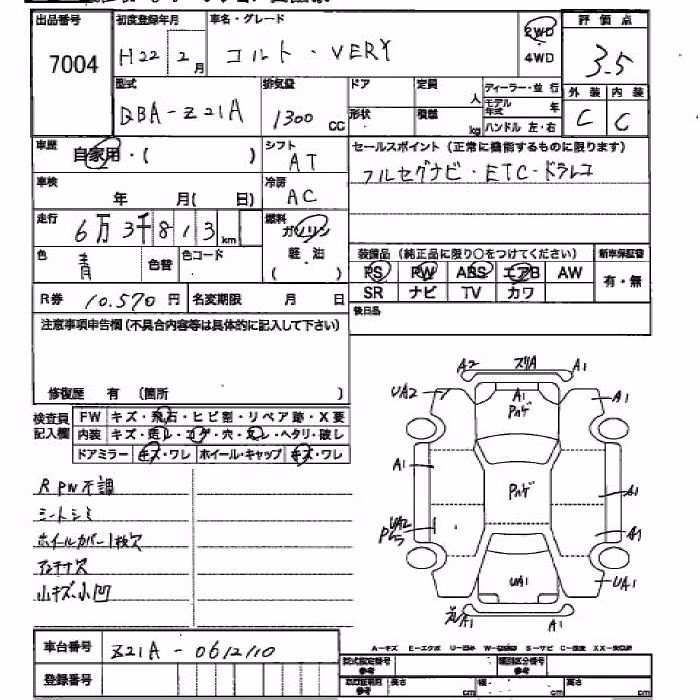 出品番号 初度登録年月 車名・グレード 評価点
7004 H22年 2月 コルト・VERY 2WD・4WD 3.5
型式 排気量 ドア 定員 ディーラー・並行 外装 内装
DBA-Z21A 1300cc 人 モデル年式 年 C C
形状 積載 kg ハンドル 左・右
車歴 自家用・( ) シフト AT セールスポイント (正常に機能するものに限ります)
車検 年 月( 日) 冷房 AC フルセグナビ・ETC・ドラレコ
走行 6万3千813km 燃料 ガソリン
色 青 色替 色コード 軽・油 ( )
装備品 (純正品に限り〇をつけてください) 新車保証書
PS PW ABS エアB AW 有・無
SR ナビ TV カワ
R券 10,570円 名変期限 月 日
後日品
注意事項申告欄(不具合内容等は具体的に記入して下さい)
修復歴 有 〔箇所 〕
検査員記入欄 FW キズ・飛石・ヒビ割・リペア跡・X要
内装 キズ・汚レ・コゲ・穴・スレ・ヘタリ・破レ
ドアミラー キズ・ワレ ホイール・キャップ キズ・ワレ
R PW不調
シートシミ
ホイルカバー1枚欠
アンテナ欠
小キズ・小凹
A2 スリA A1
UA2 A1 Pハゲ A1
A1 Pハゲ A1
UA2 A1
UA1 UA1
A1
A-キズ E-エクボ U-凹み S-サビ C-腐食
車台番号 Z21A-0612110
登録番号
型式指定番号 参考 類別区分番号 参考
参考 長さ cm 幅 cm 高さ cm